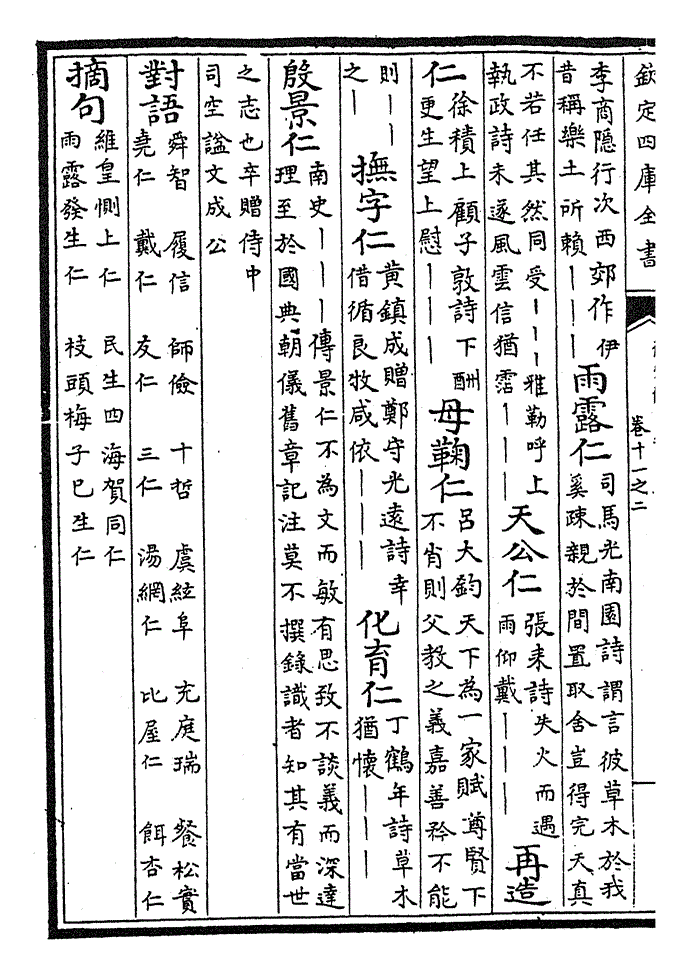 欽定四庫全書
卷十一之二
李商隱行次西郊作伊
昔稱樂土所賴｜｜｜
雨露仁
司馬光南園詩謂言彼草木於我
奚疎親於間置取舍豈得完天真
不若任其然同受｜｜｜雅勒呼上
執政詩未遂風雲信猶霑｜｜｜
天公仁
張耒詩失火而遇
雨仰戴｜｜｜
再造
仁
徐積上顧子敦詩下酬
更生望上慰｜｜｜
母鞠仁
呂大鈞天下為一家賦尊賢下
不肖則父教之義嘉善矜不能
則｜｜
之｜
撫字仁
黃鎮成贈鄭守光遠詩幸
借循良牧咸依｜｜｜
化育仁
丁鶴年詩草木
猶懷｜｜｜
殷景仁
南史｜｜｜傳景仁不為文而敏有思致不談義而深達
理至於國典朝儀舊章記注莫不撰錄識者知其有當世
之志也卒贈侍中
司空諡文成公
對語
舜智 履信 師儉 十哲 虞絃阜 充庭瑞 餐松實
堯仁 戴仁 友仁 三仁 湯網仁 比屋仁 餌杏仁
摘句
維皇惻上仁 民生四海賀同仁
雨露發生仁 枝頭梅子已生仁